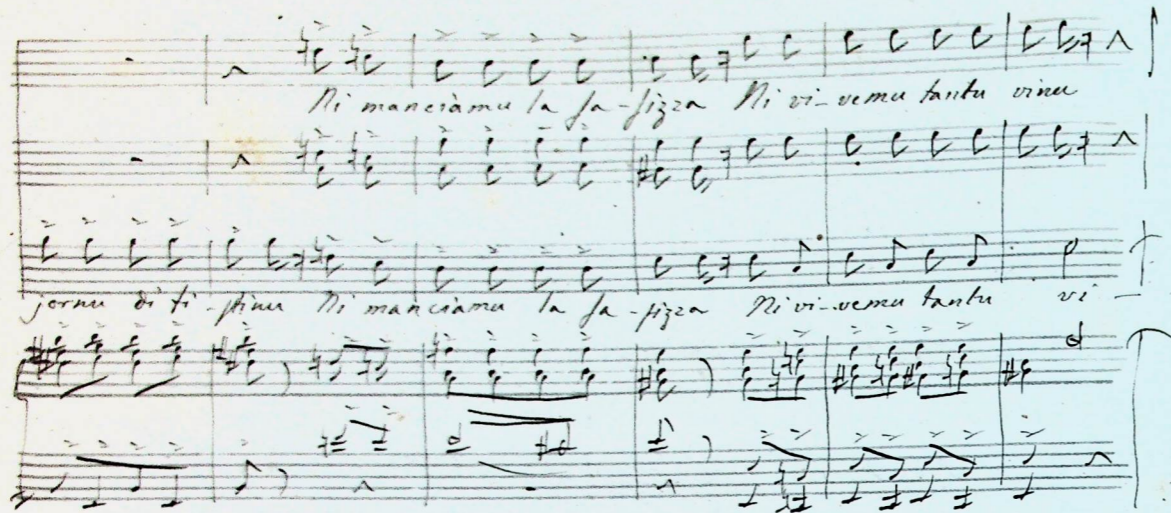 Ni manciamu la sa-sizza Ni vi-vemu tantu vinu
jornu di fi-stinu Ni manciamu la sa-sizza Ni vi-vemu tantu vi-